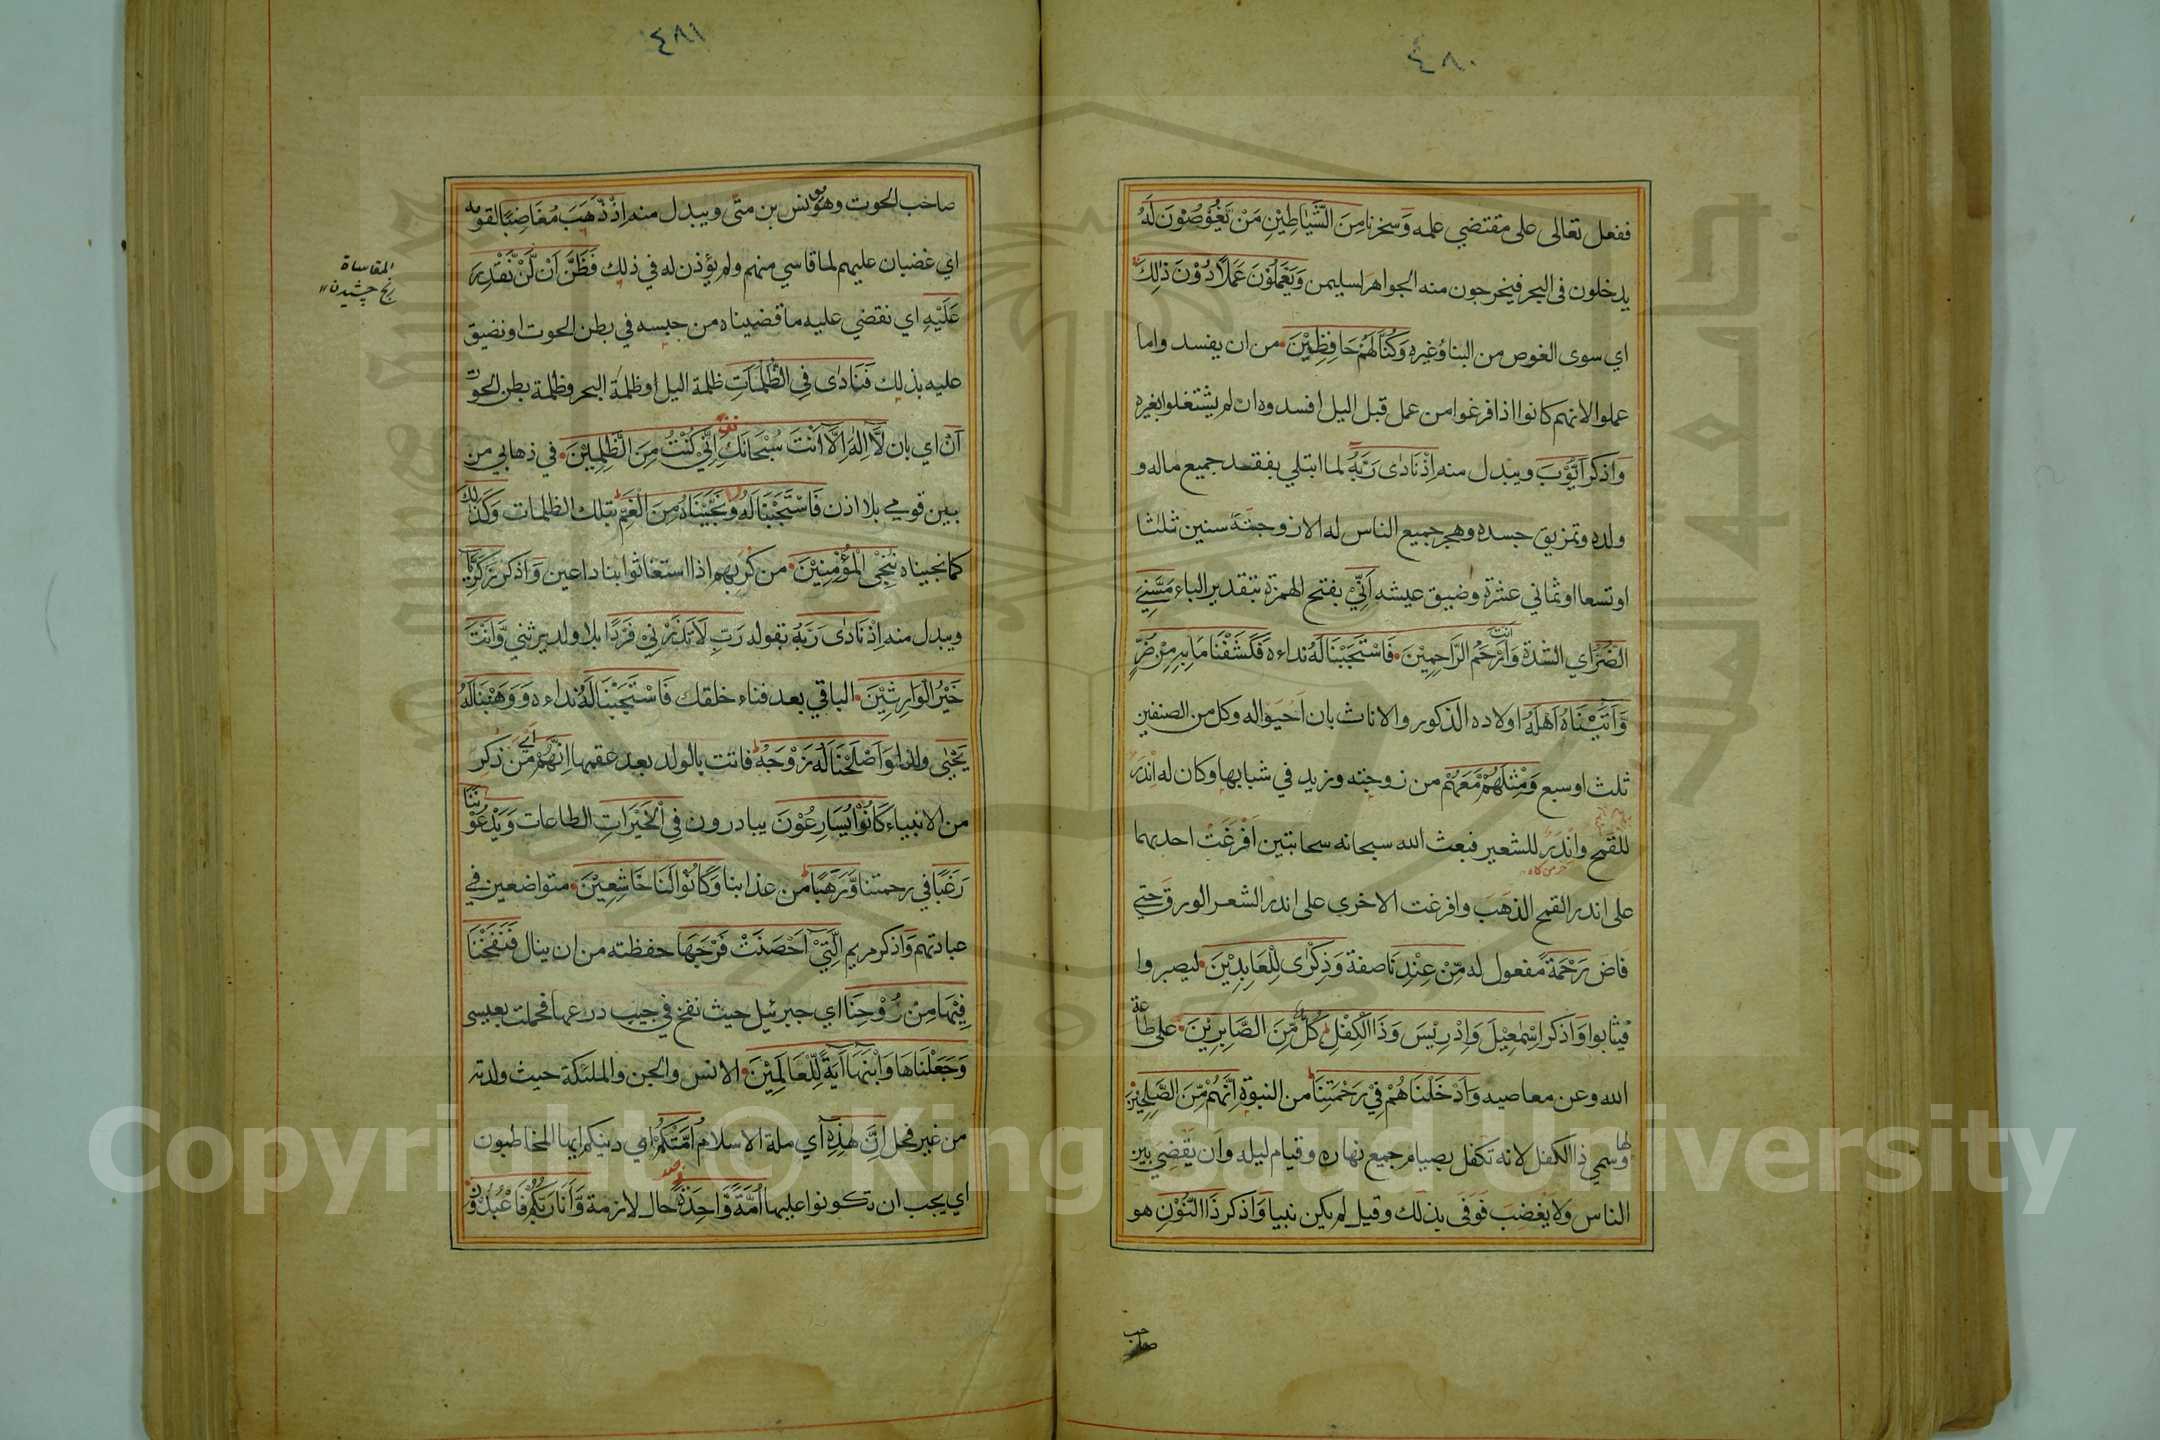 ٤٨٠
ففعل تعالى على مقتضي علمه وَسخرنا مِنَ الشَّيَاطِيْنِ مَنْ يَّغُوْصُوْنَ لَهُ
يدخلون فى البحر فيخرجون منه الجواهر لسليمن وَيَعْمَلُوْنَ عَمَلًا دُوْنَ ذٰلِكَ
اي سوى الغوص من البناء وغيره وَكُنَّا لَهُمْ حَافِظِيْنَ من ان يفسد واما
عملوا لانهم كانوا اذا فرغوا من عمل قبل اليل افسدوه ان لم يشتغلوا بغيره
وَاذكر اَيُّوْبَ ويبدل منه اِذْ نَادٰى رَبَّهُ لما ابتلي بفقد جميع ماله و
ولده وتمزيق جسده وهجر جميع الناس له الا زوجته سنين ثلثا
او تسعا او ثماني عشرة وضيق عيشه اَنِّيْ بفتح الهمزة بتقدير الباء مَسَّنِيَ
الضُّرُّ اي الشدة وَاَنْتَ اَرْحَمُ الرَّاحِمِيْنَ فَاسْتَجَبْنَا لَهُ نداءه فَكَشَفْنَا مَا بِهِ مِنْ ضُرٍّ
وَّاٰتَيْنَاهُ اَهْلَهُ اولاده الذكور والاناث بان احيوا له وكل من الصنفين
ثلث او سبع وَمِثْلَهُمْ مَّعَهُمْ من زوجته وزيد في شبابها وكان له اندر
للقمح واندر للشعير فبعث الله سبحانه سحابتين افرغت احديهما
على اندر القمح الذهب وافرغت الاخرى على اندر الشعر الورق حتي
فاض رَحْمَةً مفعول له مِّنْ عِنْدِنَا صفة وَذِكْرٰى لِلْعَابِدِيْنَ ليصبروا
فيثابوا وَاذكر اِسْمٰعِيْلَ وَاِدْرِيْسَ وَذَا الْكِفْلِ كُلٌّ مِّنَ الصَّابِرِيْنَ على طاعة
الله وعن معاصيه وَاَدْخَلْنَاهُمْ فِيْ رَحْمَتِنَا من النبوة اِنَّهُمْ مِّنَ الصّٰلِحِيْنَ
لها وسمي ذا الكفل لانه تكفل بصيام جميع نهاره وقيام ليله وان يقضي بين
الناس ولا يغضب فوفى بذلك وقيل لم يكن نبيا وَاذكر ذَا النُّوْنِ هو
صاحب
٤٨١
صاحب الحوت وهو يونس بن متّى ويبدل منه اِذْ ذَّهَبَ مُغَاضِبًا لقومه
اي غضبان عليهم لما قاسي منهم ولم يؤذن له في ذلك فَظَنَّ اَنْ لَّنْ نَّقْدِرَ
عَلَيْهِ اي نقضي عليه ما قضيناه من حبسه في بطن الحوت او نضيق
عليه بذلك فَنَادٰى فِى الظُّلُمَاتِ ظلمة اليل وظلمة البحر وظلمة بطن الحوت
اَنْ اي بان لَّا اِلٰهَ اِلَّا اَنْتَ سُبْحَانَكَ اِنِّيْ كُنْتُ مِنَ الظّٰلِمِيْنَ في ذهابي من
بين قومي بلا اذن فَاسْتَجَبْنَا لَهُ وَنَجَّيْنَاهُ مِنَ الْغَمِّ بتلك الظلمات وَكَذٰلِكَ
كما نجيناه نُنْجِى الْمُؤْمِنِيْنَ من كربهم اذا استغاثوا بنا داعين وَاذكر زَكَرِيَّا
ويبدل منه اِذْ نَادٰى رَبَّهُ بقوله رَبِّ لَا تَذَرْنِيْ فَرْدًا بلا ولد يرثني وَّاَنْتَ
خَيْرُ الْوَارِثِيْنَ الباقي بعد فناء خلقك فَاسْتَجَبْنَا لَهُ نداءه وَوَهَبْنَا لَهُ
يَحْيٰى ولدا وَاَصْلَحْنَا لَهُ زَوْجَهُ فاتت بالولد بعد عقمها اِنَّهُمْ اي من ذكر
من الانبياء كَانُوْا يُسَارِعُوْنَ يبادرون فِى الْخَيْرَاتِ الطاعات وَيَدْعُوْنَنَا
رَغَبًا في رحمتنا وَّرَهَبًا من عذابنا وَكَانُوْا لَنَا خَاشِعِيْنَ متواضعين في
عبادتهم وَاذكر مريم الَّتِيْ اَحْصَنَتْ فَرْجَهَا حفظته من ان ينال فَنَفَخْنَا
فِيْهَا مِنْ رُّوْحِنَا اي جبرئيل حيث نفخ في جيب درعها فحملت بعيسى
وَجَعَلْنَاهَا وَابْنَهَا اٰيَةً لِّلْعَالَمِيْنَ الانس والجن والملئكة حيث ولدته
من غير فحل اِنَّ هٰذِهِ اي ملة الاسلام اُمَّتُكُمْ اي دينكم ايها المخاطبون
اي يجب ان تكونوا عليها اُمَّةً وَّاحِدَةً حال لازمة وَّاَنَا رَبُّكُمْ فَاعْبُدُوْنِ
المقاساة
رنج چشيدن
Copyright © King Saud University